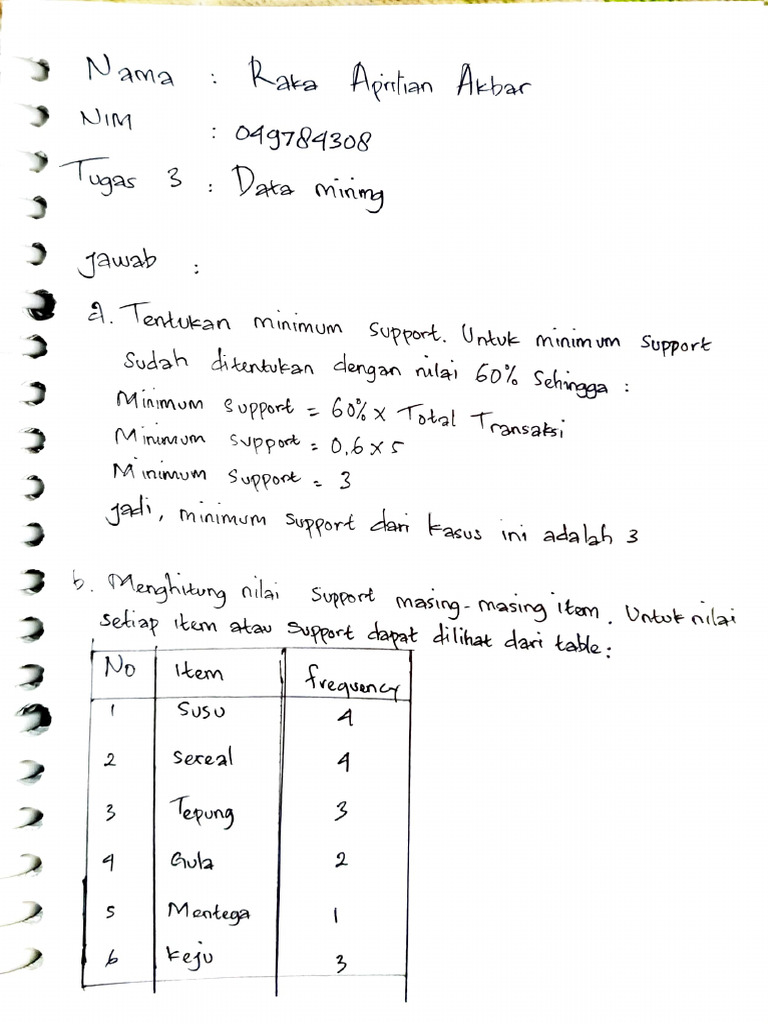 Nama : Raka Apritian Akbar
NIM : 049784308
Tugas 3 : Data mining
Jawab :
a. Tentukan minimum support. Untuk minimum support
sudah ditentukan dengan nilai 60% sehingga :
Minimum support = 60% x Total Transaksi
Minimum support = 0,6 x 5
Minimum support = 3
jadi, minimum support dari kasus ini adalah 3
b. Menghitung nilai support masing-masing item. Untuk nilai
setiap item atau support dapat dilihat dari table:
No Item frequency
1 Susu 4
2 Sereal 4
3 Tepung 3
4 Gula 2
5 Mentega 1
6 Keju 3